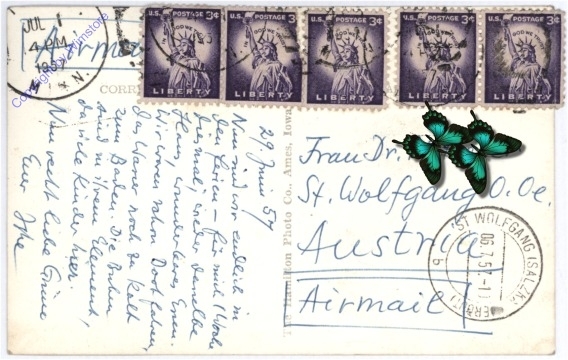 JUL 1
4 PM
19
N.
Airmail
Copyright by
store
U.S. POSTAGE 3¢
IN GOD WE TRUST
LIBERTY
U.S. POSTAGE 3¢
IN GOD WE TRUST
LIBERTY
U.S. POSTAGE 3¢
IN GOD WE TRUST
LIBERTY
U.S. POSTAGE 3¢
IN GOD WE TRUST
LIBERTY
U.S. POSTAGE 3¢
IN GOD WE TRUST
LIBERTY
CORR
29 Juni 57
Nun sind wir endlich in
den Ferien – für mich 1 Woche
diesmal, aber derselbe
wunderbares Essen.
Wir waren schon Boot fahren,
das Wasser noch zu kalt
zum Baden. Die Buben
sind in ihrem Element,
da viele Kinder hier.
Nun recht liebe Grüsse
Eure
The Hamilton Photo Co., Ames, Iowa
Frau Dr.
St. Wolfgang O. Oe.
Austria
Airmail
ST. WOLFGANG (SALZK
06.7.57-11
b